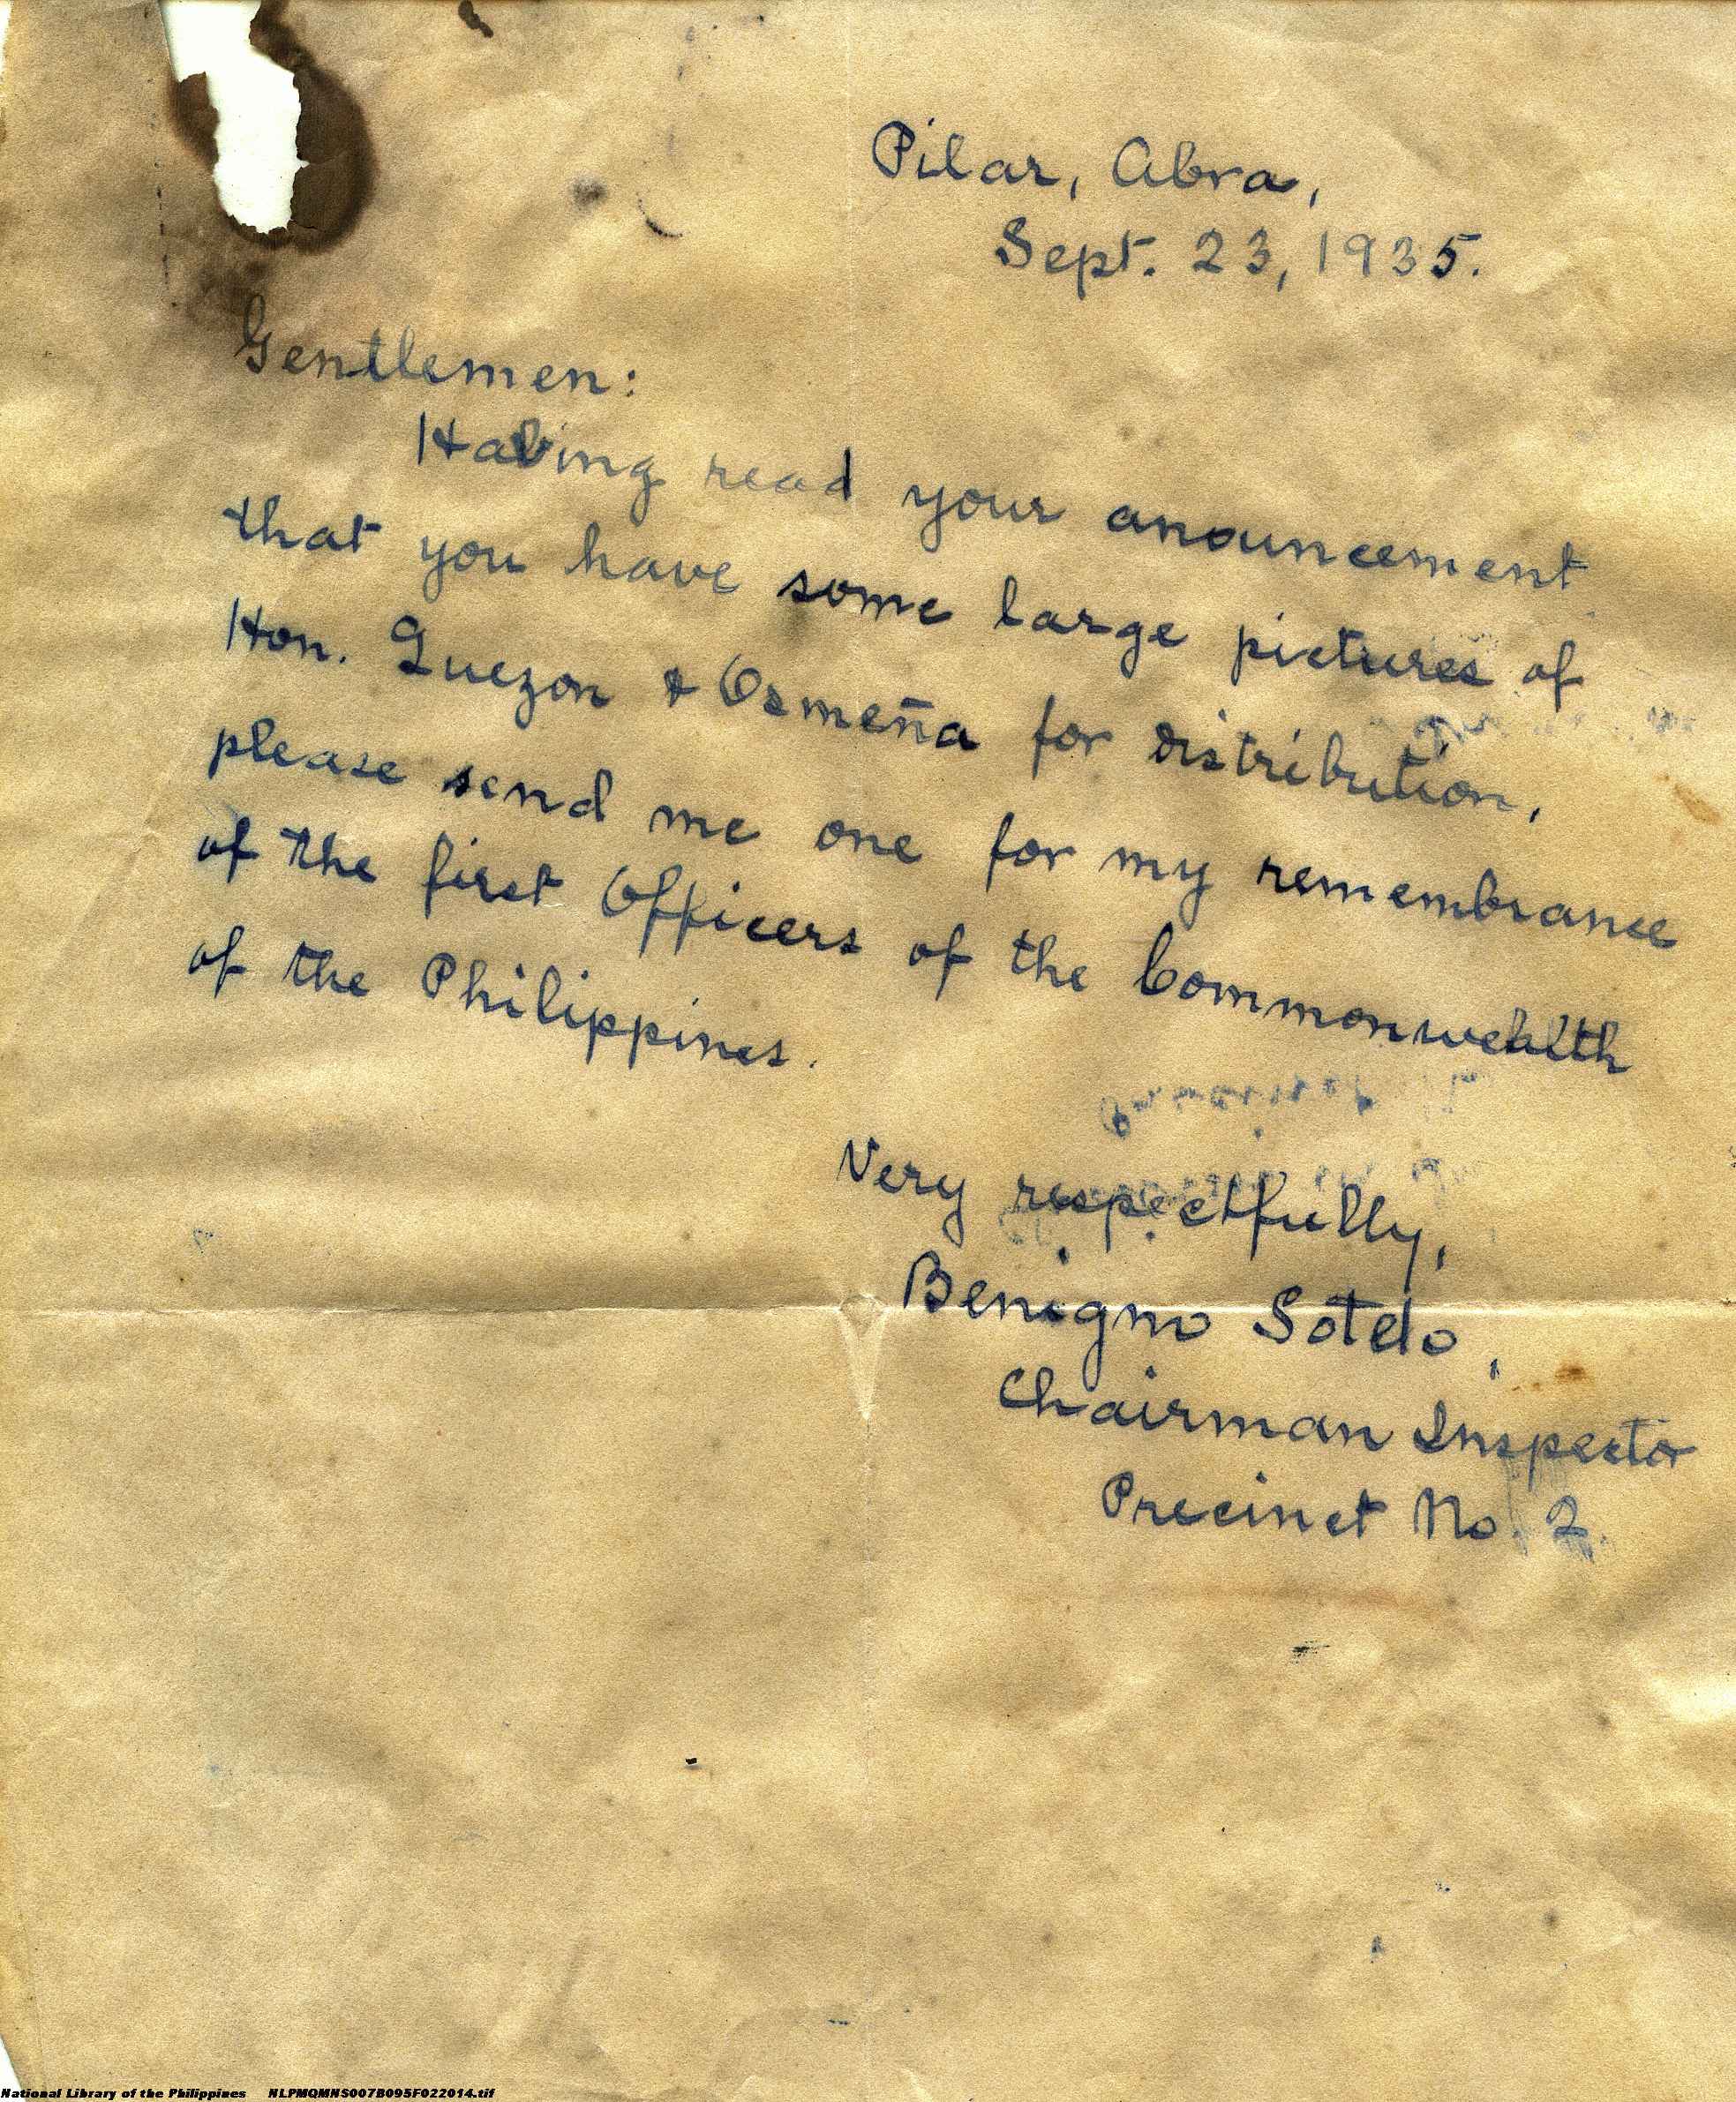 Pilar, Abra,
Sept. 23, 1935.
Gentlemen:
Having read your anouncement
that you have some large pictures of
Hon. Quezon & Osmeña for distribution,
please send me one for my remembrance
of the first Officers of the Commonwealth
of the Philippines.
Very respectfully,
Benigno Sotelo,
Chairman Inspector
Precinct No. 2.
National Library of the Philippines NLPMQMNS007B095F022014.tif